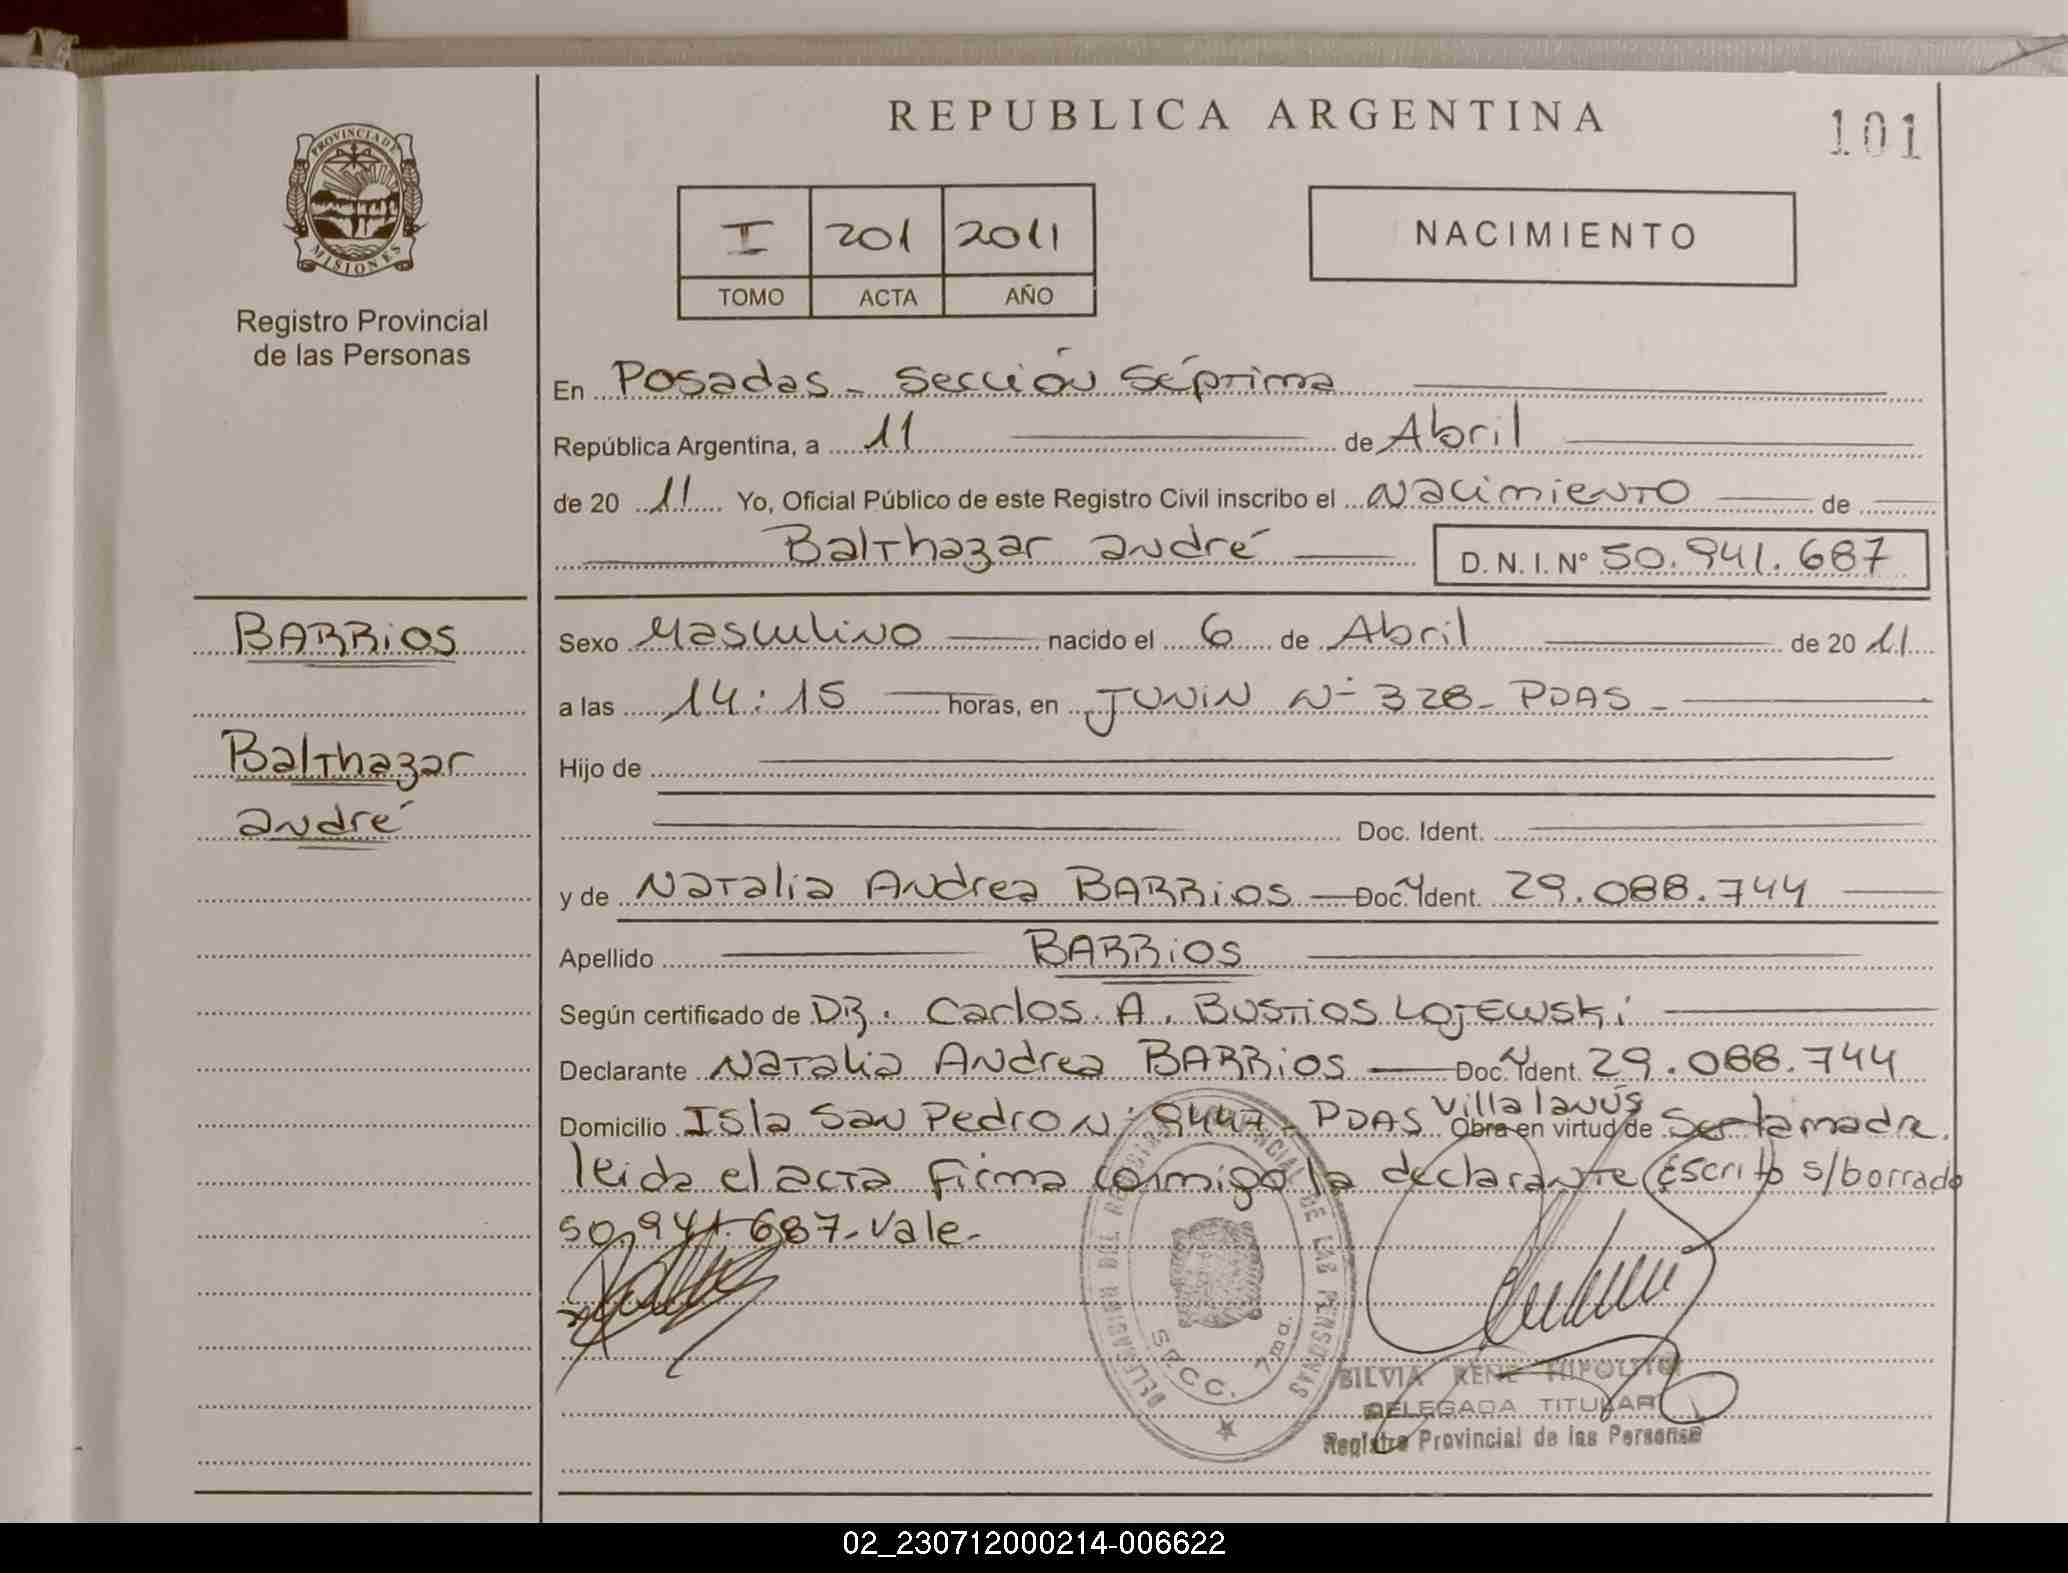 REPUBLICA ARGENTINA
101
PROVINCIA DE
MISIONES
Registro Provincial
de las Personas
I 201 2011
TOMO ACTA AÑO
NACIMIENTO
En Posadas - Sección Séptima
República Argentina, a 11 de Abril
de 20 11 Yo, Oficial Público de este Registro Civil inscribo el Nacimiento de
Balthazar André
D. N. I. Nº 50.941.687
BARRIOS
Balthazar
André
Sexo Masculino nacido el 6 de Abril de 20 11
a las 14:15 horas, en JUNIN Nº 328 - PDAS -
Hijo de
Doc. Ident.
y de Natalia Andrea BARRIOS Doc. Ident. 29.088.744
Apellido BARRIOS
Según certificado de DR. Carlos A. BUSTIOS LOJEWSKi
Declarante Natalia Andrea BARRIOS Doc. Ident. 29.088.744
Domicilio Isla San Pedro Nº 9447 - PDAS Villa lanús Obra en virtud de Ser la madre.
leida el acta firma conmigo la declarante (Escrito s/borrado
50.941.687-Vale-
DELEGACION DEL REGISTRO PROVINCIAL DE LAS PERSONAS
SECC. 7ma.
SILVIA RENE HIPOLITO
DELEGADA TITULAR
Registro Provincial de las Personas
02_230712000214-006622